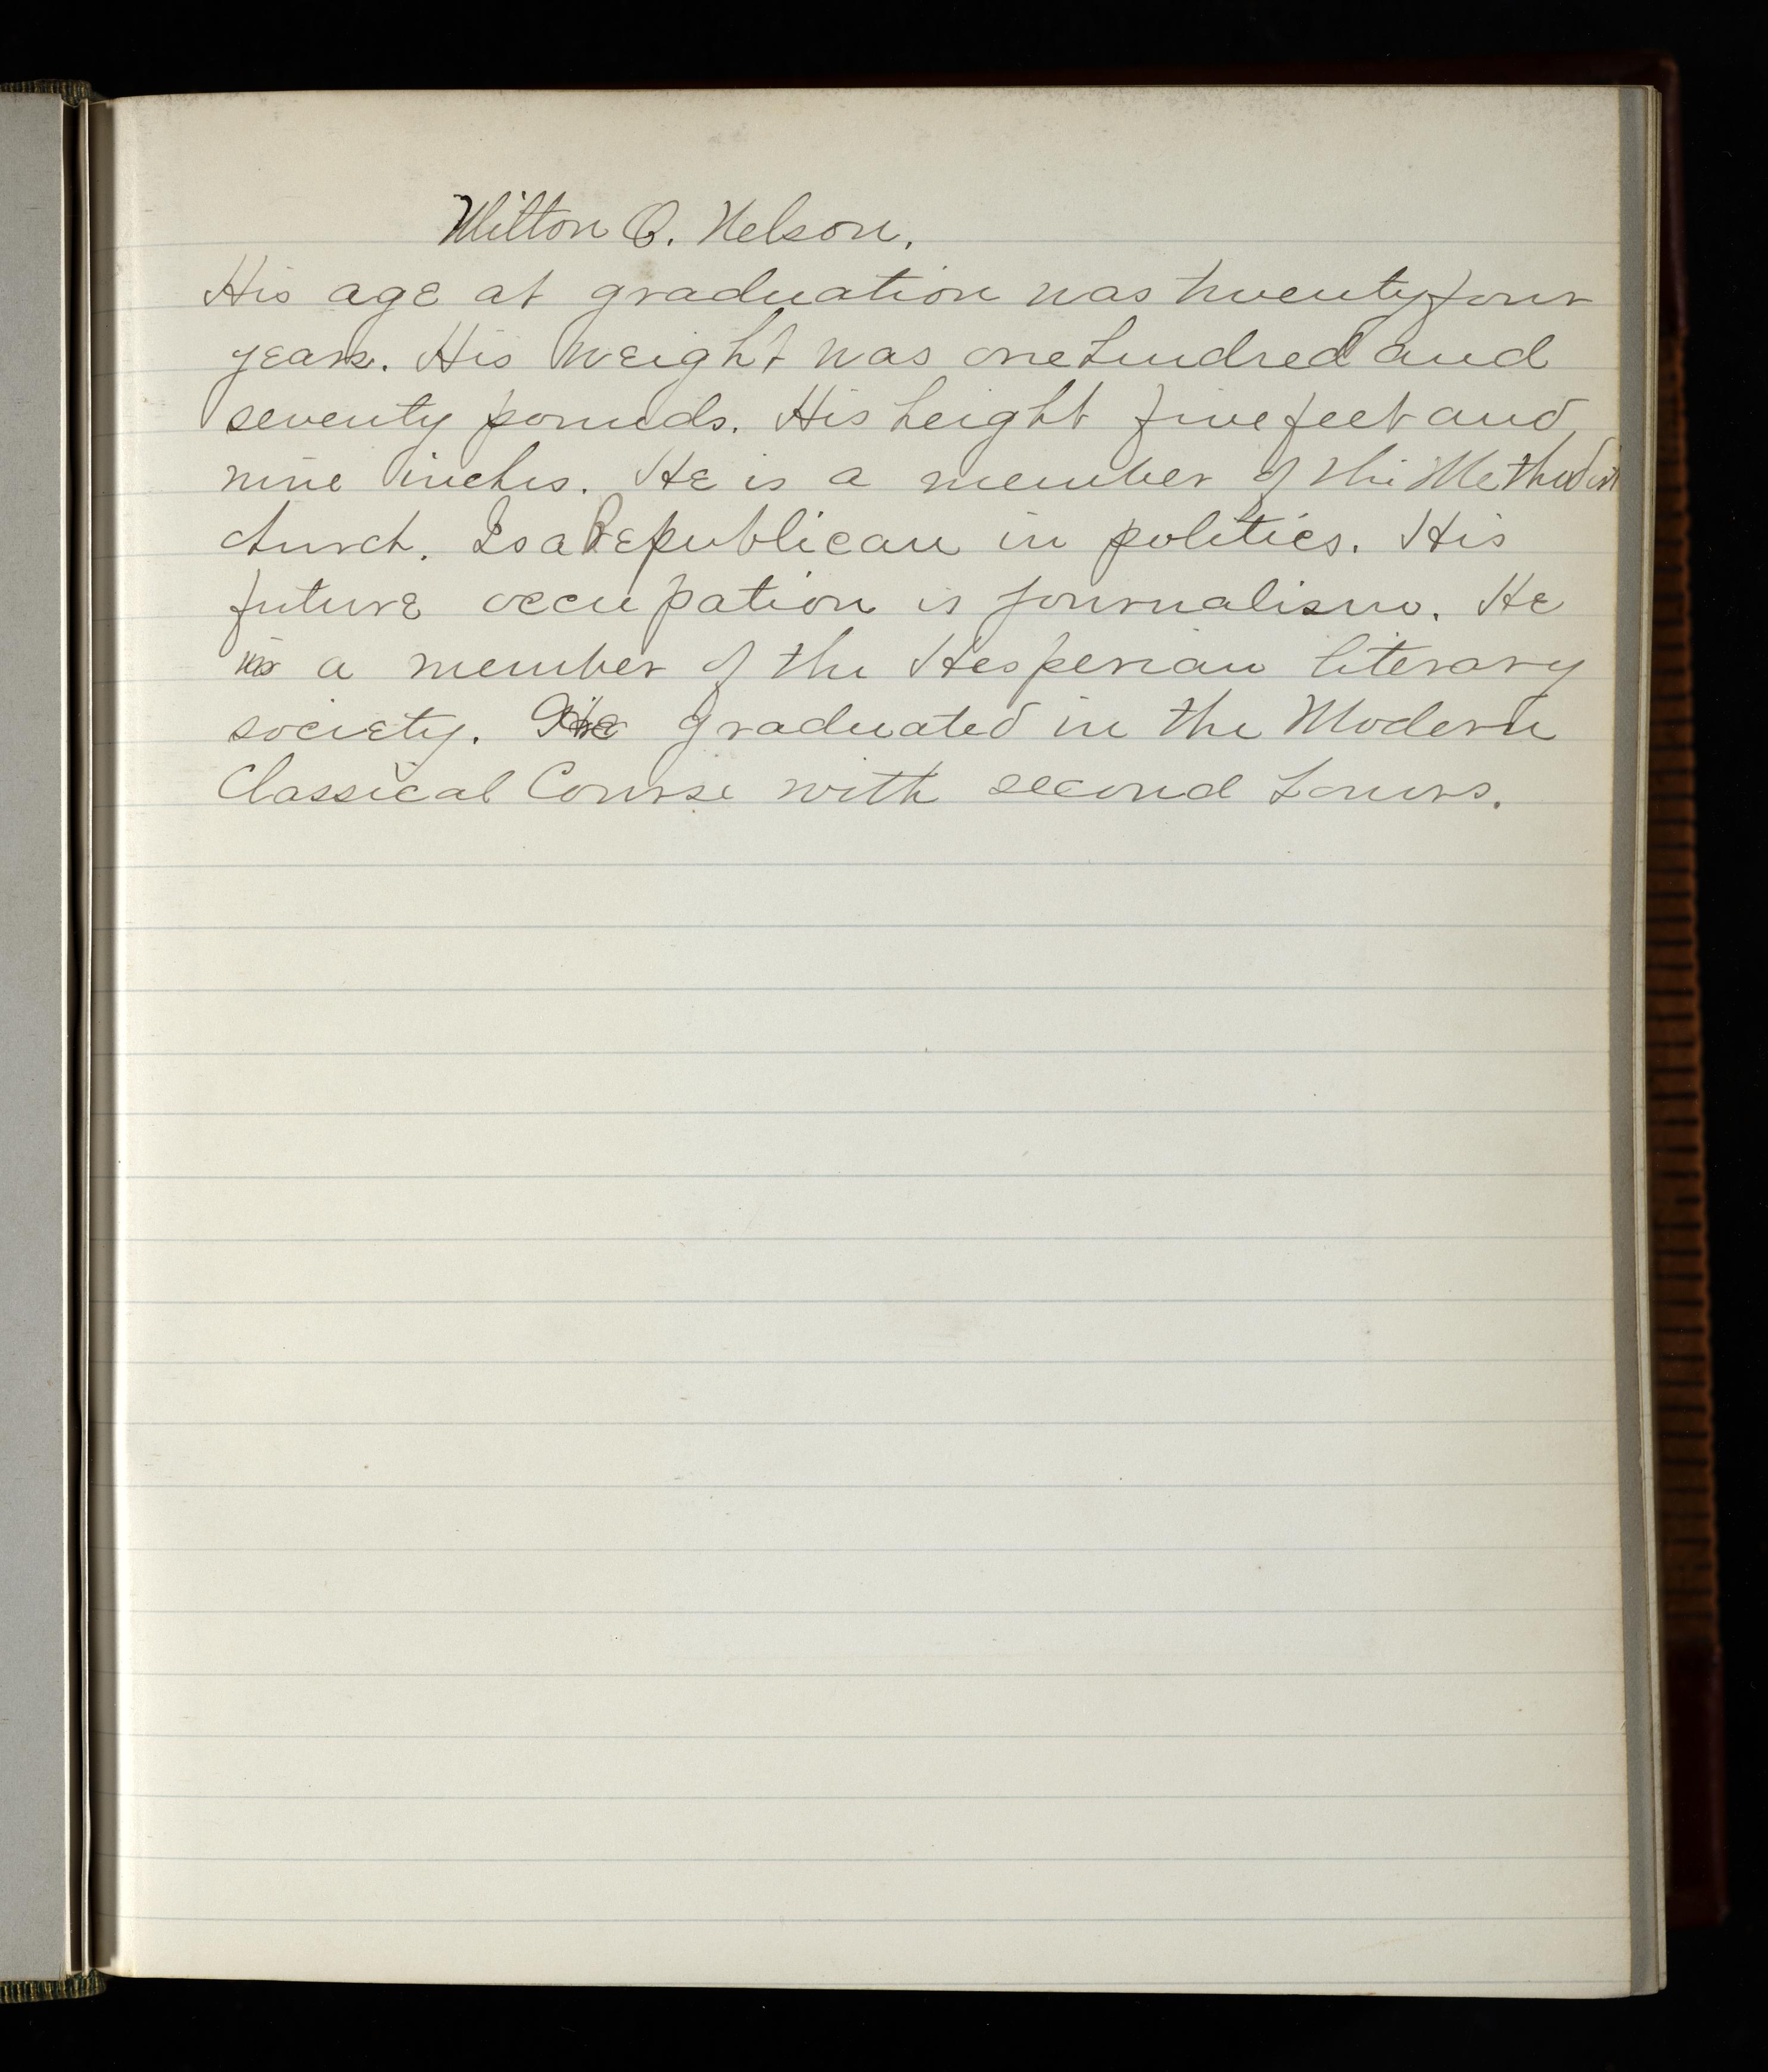 Milton O. Nelson.
His age at graduation was twenty four
years. His weight was one hundred and
seventy pounds. His height five feet and
nine inches. He is a member of the Methodist
church. Is a Republican in politics. His
future occupation is journalism. He
is a member of the Hesperian literary
society. He graduated in the Modern
Classical Course with second honors.